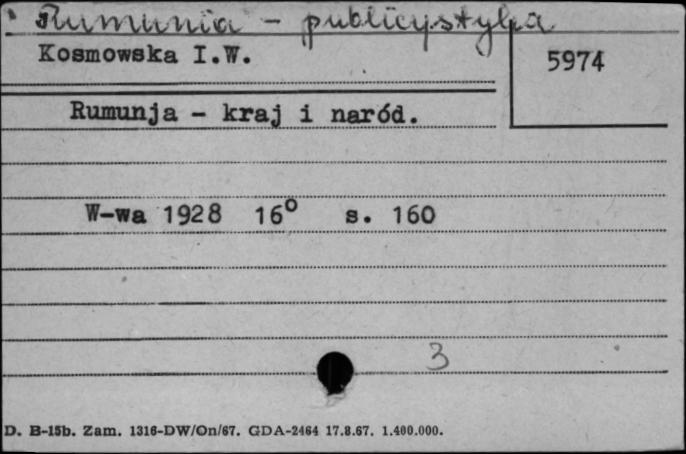 Rumunia - publicystyka
Kosmowska I.W.
5974
Rumunja - kraj i naród.
W-wa 1928 16° s. 160
3
D. B-15b. Zam. 1316-DW/On/67. GDA-2464 17.8.67. 1.400.000.